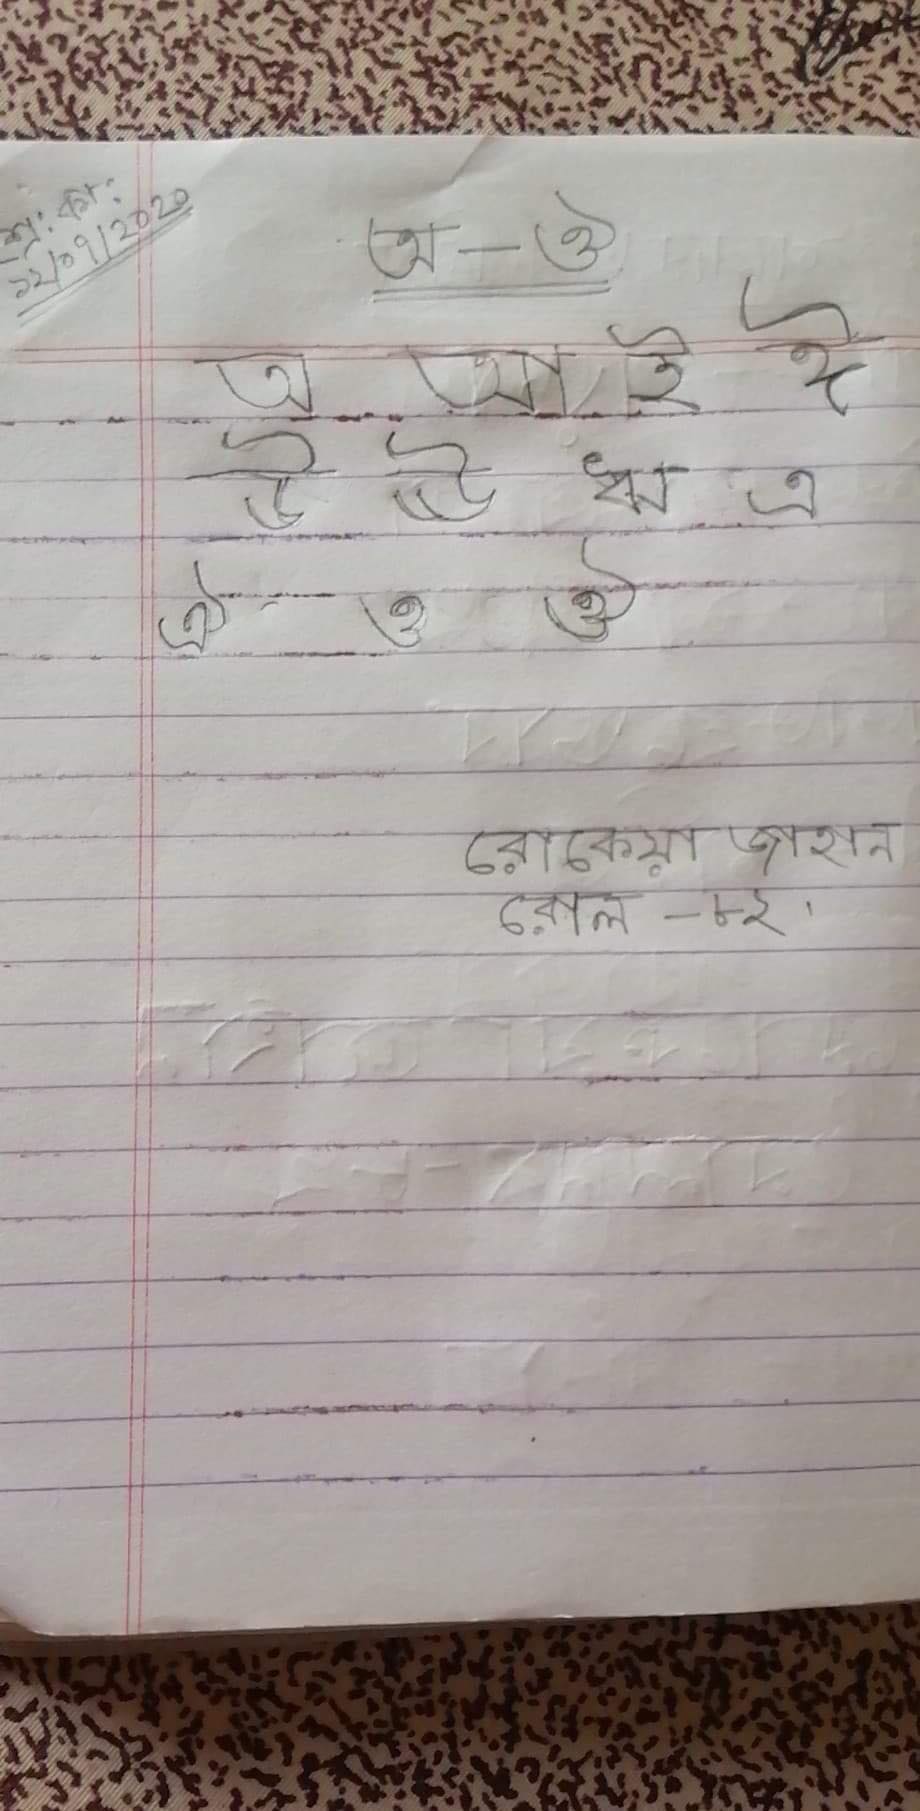 শ্রে: কা:
১২/০৭/২০২০
অ - ঔ
অ আ ই ঈ
উ ঊ ঋ এ
ঐ ও ঔ
রোকেয়া জাহান
রোল - ৮২।